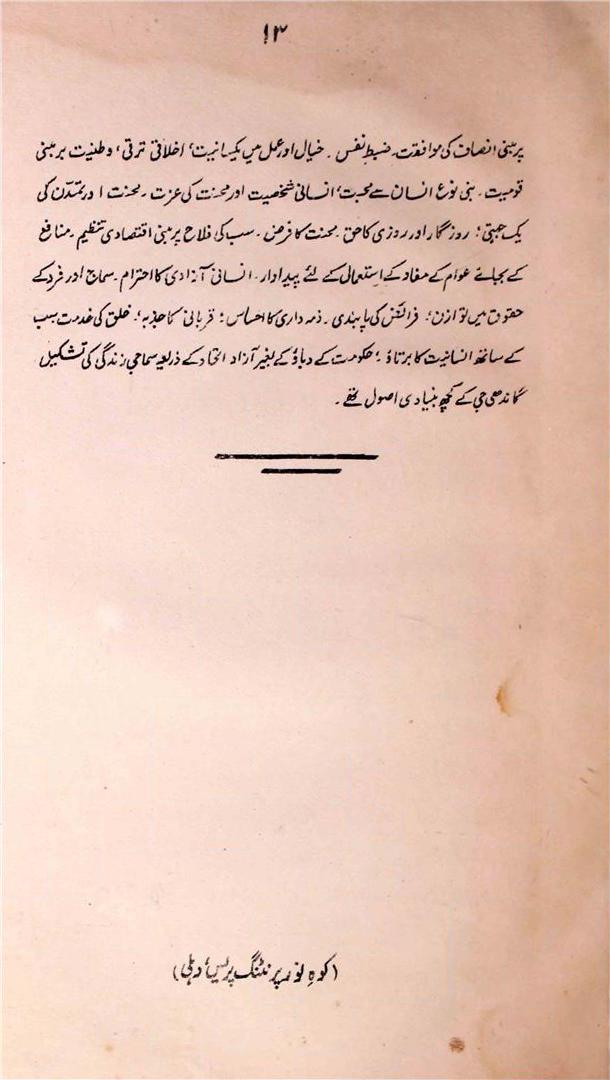 ۱۳
پر مبنی انصاف کی موافقت۔ ضبطِ نفس۔ خیال اور عمل میں یکسانیت، اخلاقی ترقی، وطنیت پر مبنی
قومیت۔ بنی نوع انسان سے محبت، انسانی شخصیت اور محنت کی عزت۔ محنت اور تمدن کی
یک جہتی؛ روزگار اور روزی کا حق۔ محنت کا فرض۔ سب کی فلاح پر مبنی اقتصادی تنظیم۔ منافع
کے بجائے عوام کے مفاد کے استعمال کے لئے پیداوار۔ انسانی آزادی کا احترام۔ سماج اور فرد کے
حقوق میں توازن؛ فرائض کی پابندی۔ ذمہ داری کا احساس؛ قربانی کا جذبہ؛ خلق کی خدمت سب
کے ساتھ انسانیت کا برتاؤ؛ حکومت کے دباؤ کے بغیر آزاد اتحاد کے ذریعہ سماجی زندگی کی تشکیل
گاندھی جی کے کچھ بنیادی اصول تھے۔
(کوہِ نور پرنٹنگ پریس، دہلی)